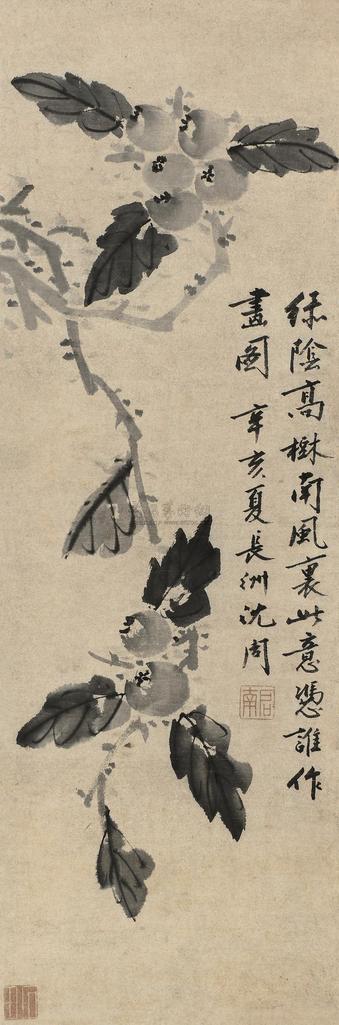 绿陰高樹南風裏此意憑誰作
畫圖 辛亥夏長洲沈周
啓南